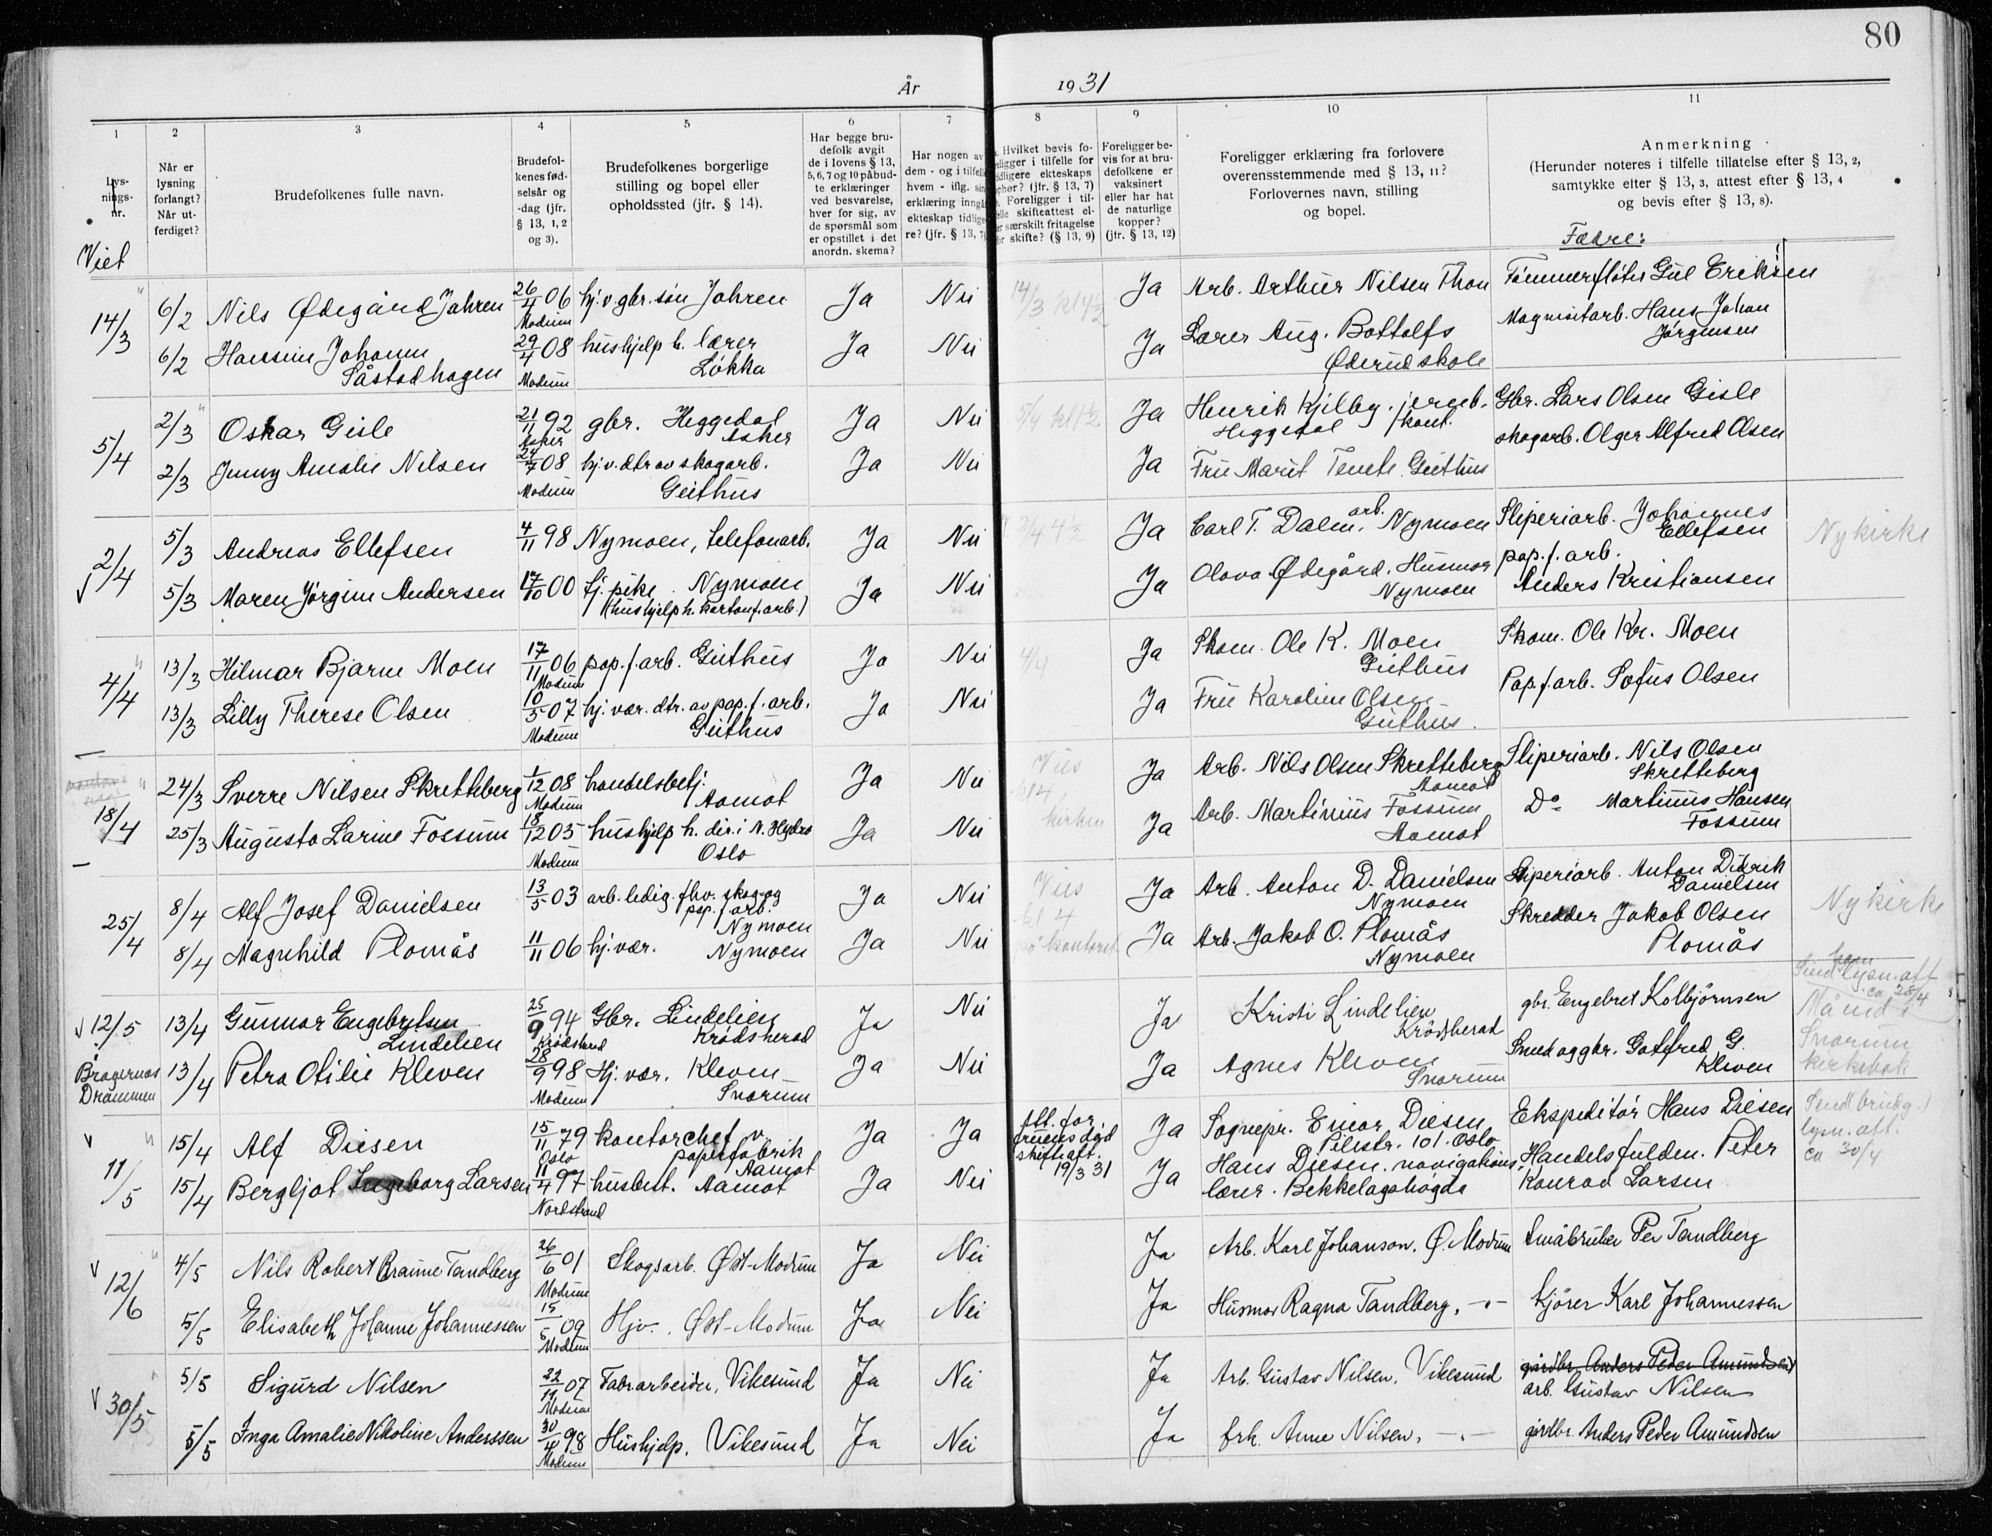 80
År 1931
1 2 3 4 5 6 7 8 9 10 11
Lys-
nings-
nr.
Når er
lysning
forlangt?
Når ut-
ferdiget?
Brudefolkenes fulle navn.
Brudefol-
kenes fød-
selsår og
-dag (jfr.
§ 13, 1, 2
og 3).
Brudefolkenes borgerlige
stilling og bopel eller
opholdssted (jfr. § 14).
Har begge bru-
defolk avgit
de i lovens § 13,
5, 6, 7 og 10 påbud-
te erklæringer
ved besvarelse,
hver for sig, av
de spørsmål som
er opstillet i det
anordn. skema?
Har nogen av
dem - og i tilfelle
hvem - iflg. sin
erklæring inngått
ekteskap tidlige-
re? (jfr. § 13, 7)
Hvilket bevis fo-
religger i tilfelle for
tidligere ekteskaps
ophør? (jfr. § 13, 7)
Foreligger i til-
felle skifteattest el-
ler særskilt fritagelse
for skifte? (§ 13, 9)
Foreligger be-
vis for at bru-
defolkene er
vaksinert
eller har hat
de naturlige
kopper?
(jfr. § 13, 12)
Foreligger erklæring fra forlovere
overensstemmende med § 13, 11?
Forlovernes navn, stilling
og bopel.
Anmerkning
(Herunder noteres i tilfelle tillatelse efter § 13, 2,
samtykke efter § 13, 3, attest efter § 13, 4
og bevis efter § 13, 8).
Viet
Fædre:
14/3 6/2 Nils Ødegård Jahren 26/4 06 Modum hj.v. gbr. søn Jahren Ja Nei 14/3 kl 4½ Ja Arb. Arthur Nilsen Thon Tømmerfløter Gul Eriksen
6/2 Hansine Johanne Såstadhagen 29/4 08 Modum hushjelp h. lærer Løkka Ja Nei Ja Lærer Aug. Bottolfs Øderud skole Magnisitarb. Hans Johan Jørgensen
5/4 2/3 Oskar Gisle 21/11 92 Asker gbr. Heggedal Asker Ja Nei 5/4 kl 1½ Ja Henrik Kjilby. jernb. kont. Heggedal Gbr. Lars Olsen Gisle
2/3 Jenny Amalie Nilsen 24/7 08 Modum hj.v. dtr av skogarb. Geithus Ja Nei Ja Fru Marit Tenete Geithus skogarb. Olger Alfred Olsen
2/4 5/3 Andreas Ellefsen 4/11 98 Nymoen, telefonarb. Ja Nei 2/4 4½ Ja Carl T. Dalen, arb. Nymoen Sliperiarb. Johannes Ellefsen Nykirke
5/3 Maren Jørgine Andersen 17/10 00 tj. pike Nymoen (hushjelp h. kartonf.arb.) Ja Nei Ja Olava Ødegård. Husmor Nymoen pap.f.arb. Anders Kristiansen
4/4 13/3 Hilmar Bjarne Moen 17/11 06 Modum pap.f.arb. Geithus Ja Nei 4/4 Ja Skom. Ole K. Moen Geithus Skom. Ole Kr. Moen
13/3 Lilly Therese Olsen 10/5 07 Modum hj. vær. dtr. av pap.f.arb. Geithus Ja Nei Ja Fru Karoline Olsen Geithus. Pap.f.arb. Sofus Olsen
18/4 24/3 Sverre Nilsen Skretteberg 1/12 08 Modum handelsbetj. Aamot Ja Nei Vies kl 4 kirken Ja Arb. Nils Olsen Skretteberg Aamot Sliperiarb. Nils Olsen Skretteberg
25/3 Augusta Larine Fossum 18/12 05 Modum hushjelp h. dir. i N. Hydro Oslo Ja Nei Ja Arb. Martinius Fossum Aamot Do Martinius Hansen Fossum
25/4 8/4 Alf Josef Danielsen 13/5 03 arb. ledig. fhv. skog- og pap.f.arb. Nymoen Ja Nei Vies kl 4 på kontoret Ja Arb. Anton D. Danielsen Nymoen Sliperiarb. Anton Didrik Danielsen Nykirke
8/4 Magnhild Plomås 11/11 06 hj. vær. Nymoen Ja Nei Ja Arb. Jakob O. Plomås Nymoen Skredder Jakob Olsen Plomås
12/5 13/4 Gunnar Engebretsen Lindelien 25/9 94 Krødsherad Gbr. Lindelien Krødsherad Ja Nei Ja Kristi Lindelien Krødsherad gbr. Engebret Kolbjørnsen Send ham lysn. att ca 28/4
Bragernes Drammen 13/4 Petra Otilie Kleven 28/9 98 Modum Hj. vær. Kleven Snarum Ja Nei Ja Agnes Kleven Snarum Smed og gbr. Gotfred G. Kleven Snarum kirkebok
11/5 15/4 Alf Diesen 15/11 79 Oslo kontorchef v. papirfabrik Aamot Ja Ja Att. for fruens død skifteatt. 19/3 31 Ja Sognepr. Einar Diesen Pilestr. 101. Oslo Ekspeditør Hans Diesen Send brudg. lysn. att. ca 30/4
15/4 Bergljot Ingeborg Larsen 11/4 97 Nordstrand husbest. Aamot Ja Nei Ja Hans Diesen. navigations lærer. Bekkelagshøgda Handelsfuldm. Peter Konrad Larsen
12/6 4/5 Nils Robert Braune Tandberg 26/6 01 Modum Skogsarb. Øst-Modum Ja Nei Ja Arb. Karl Johanson. Ø. Modum Småbruker Per Tandberg
5/5 Elisabeth Johanne Johannessen 15/5 09 Modum Hjv. Øst-Modum Ja Nei Ja Husmor Ragna Tandberg, -"- kjører Karl Johannessen
30/5 5/5 Sigurd Nilsen 22/11 07 Modum Fabr.arbeider, Vikesund Ja Nei Ja Arb. Gustav Nilsen, Vikesund gårdbr. Anders Peder Amundsen arb. Gustav Nilsen
5/5 Inga Amalie Nikoline Anderssen 30/4 98 Modum Hushjelp. Vikesund Ja Nei Ja frk. Anne Nilsen, -"- gårdbr. Anders Peder Amundsen